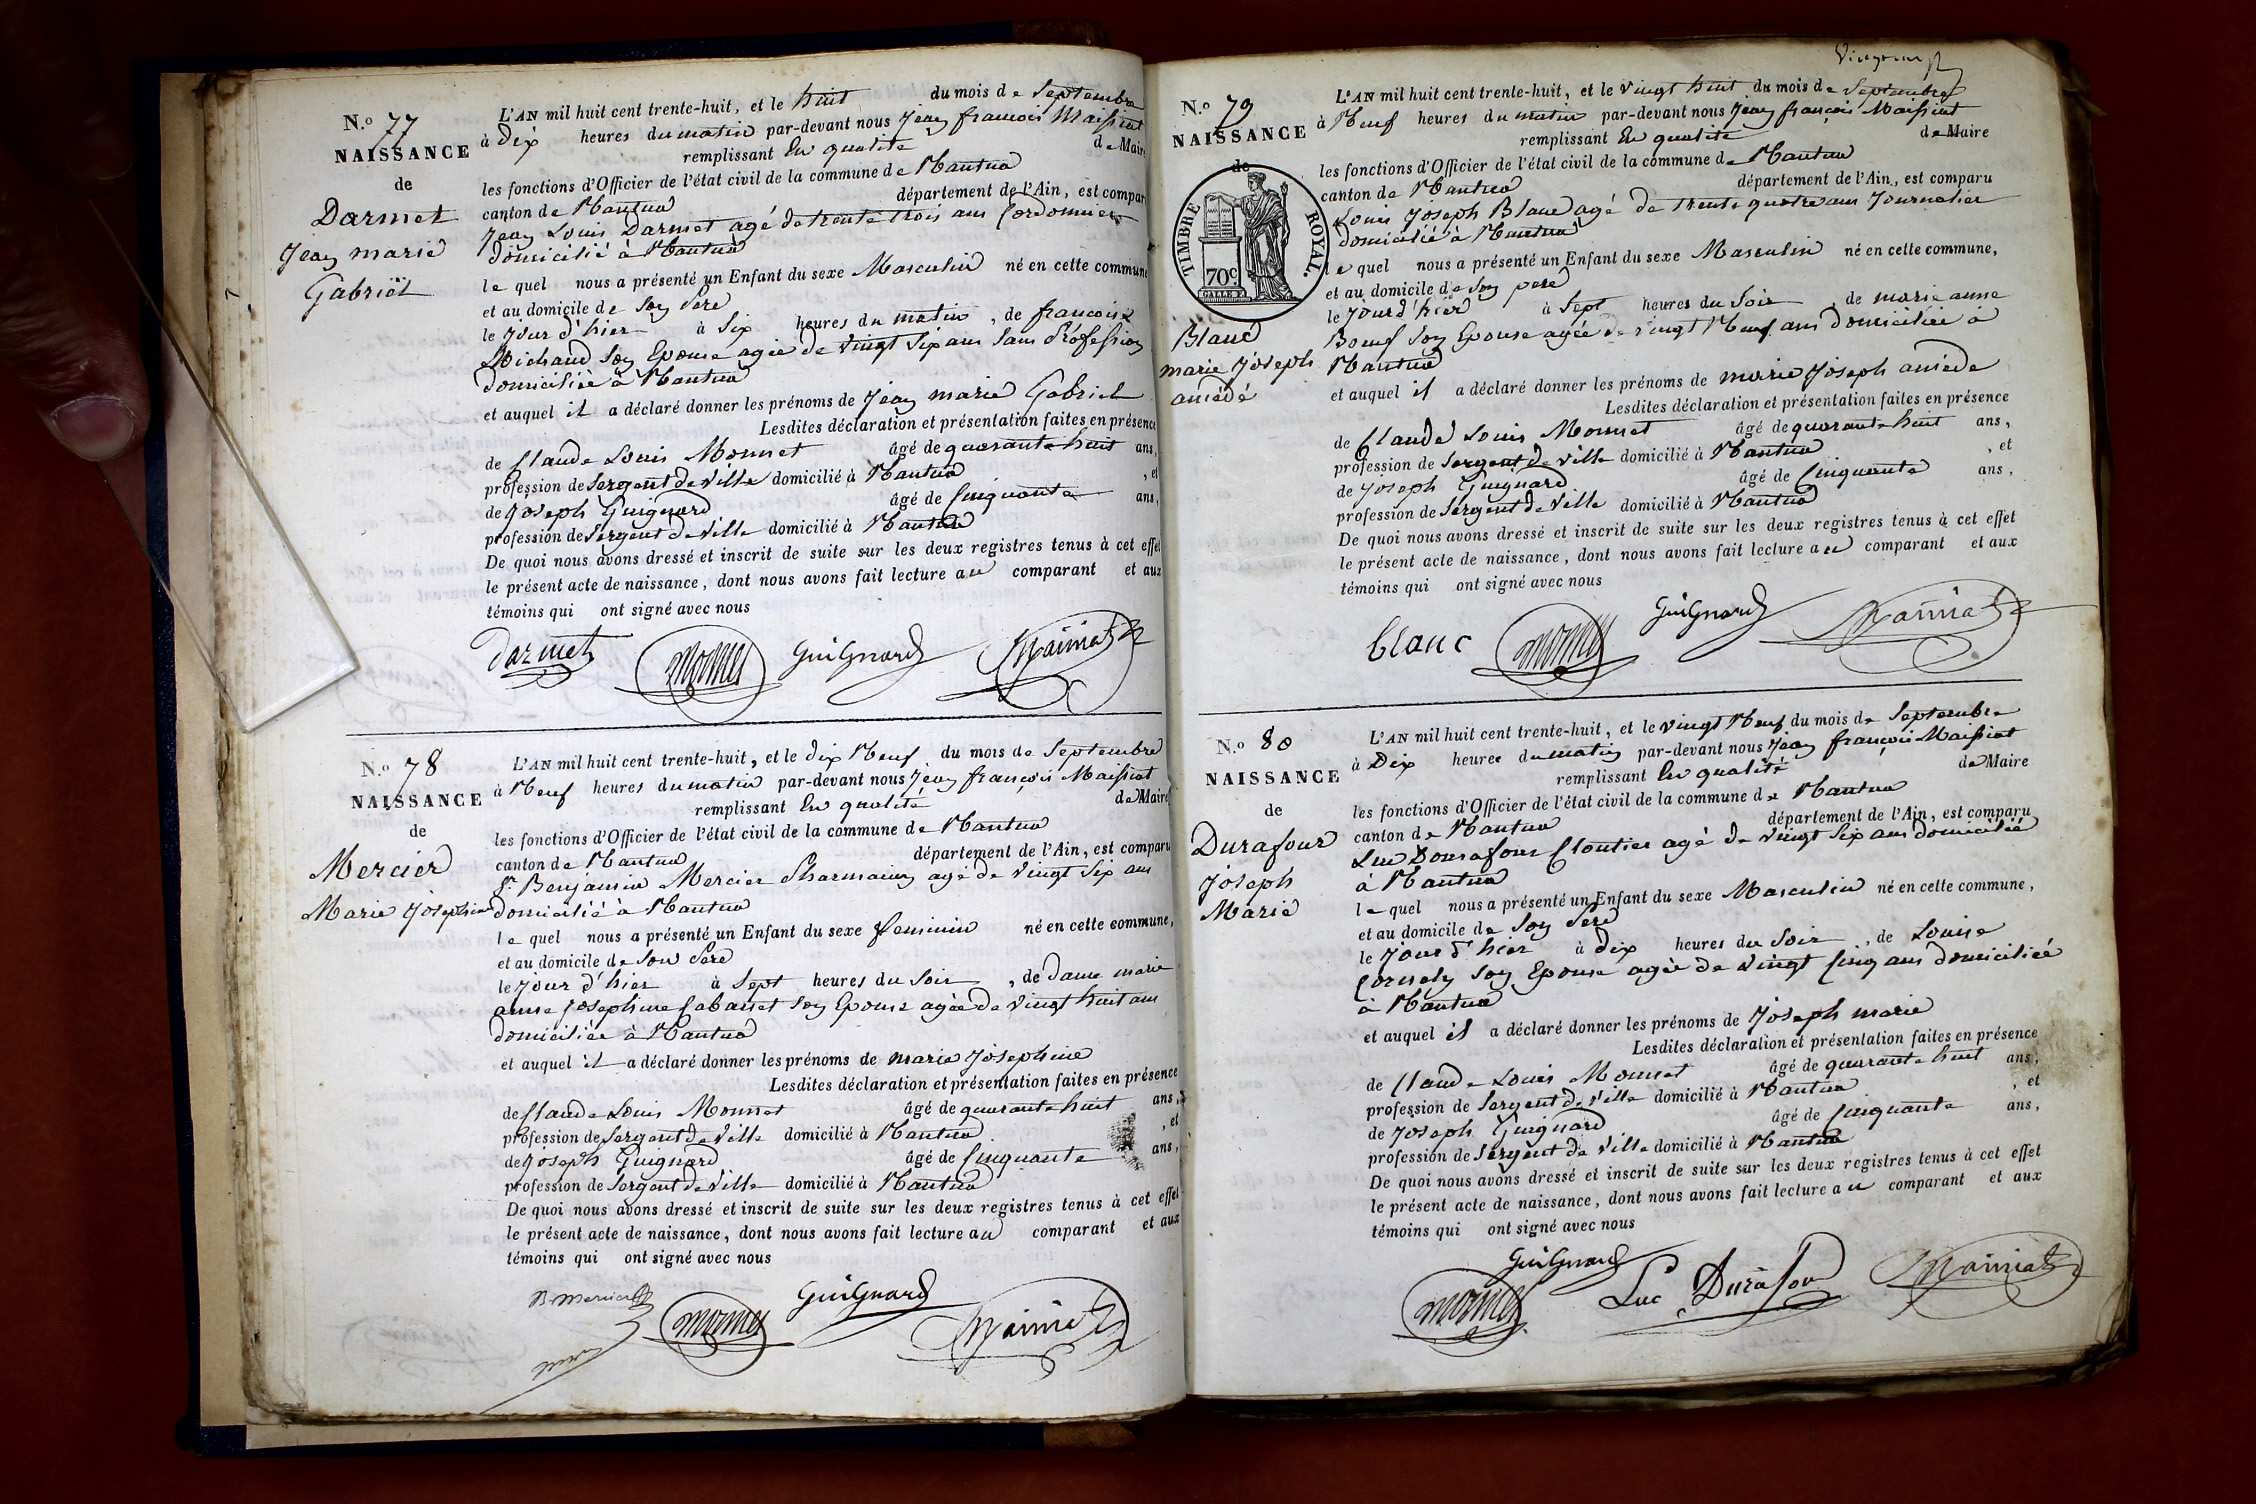 N.o 77
NAISSANCE
de
Darmet
Jean marie
Gabriel
L'AN mil huit cent trente-huit, et le huit du mois de Septembre
à Dix heures du matin par-devant nous Jean françois Maissiat
remplissant En qualité de Maire
les fonctions d'Officier de l'état civil de la commune de Nantua
canton de Nantua département de l'Ain, est compar
Jean Louis Darmet agé de trente trois ans Cordonnier
domicilié à Nantua
le quel nous a présenté un Enfant du sexe Masculin né en cette commune
et au domicile de son Pere
le jour d'hier à Six heures du matin, de francoise
Michaud son Epouse agée de vingt Six ans Sans Profession
domiciliée à Nantua
et auquel il a déclaré donner les prénoms de Jean marie Gabriel
Lesdites déclaration et présentation faites en présence
de Claude Louis Monnet âgé de quarante huit ans,
profession de Sergent de Ville domicilié à Nantua, et
de Joseph Guignard âgé de Cinquante ans,
profession de Sergent de Ville domicilié à Nantua
De quoi nous avons dressé et inscrit de suite sur les deux registres tenus à cet effet
le présent acte de naissance, dont nous avons fait lecture au comparant et aux
témoins qui ont signé avec nous
Darmet Monnet GuiGnard Maissiat
N.o 78
NAISSANCE
de
Mercier
Marie Josephine
L'AN mil huit cent trente-huit, et le dix Neuf du mois de Septembre
à Neuf heures du matin par-devant nous Jean françois Maissiat
remplissant En qualité de Maire
les fonctions d'Officier de l'état civil de la commune de Nantua
canton de Nantua département de l'Ain, est comparu
Sr. Benjamin Mercier Pharmacien agé de Vingt Six ans
domicilié à Nantua
le quel nous a présenté un Enfant du sexe feminin né en cette commune,
et au domicile de son Pere
le jour d'hier à Sept heures du Soir, de Dame marie
anne Josephine Cabanet son Epouse agée de vingt huit ans
domiciliée à Nantua
et auquel il a déclaré donner les prénoms de marie Josephine
Lesdites déclaration et présentation faites en présence
de Claude Louis Monnet âgé de quarante huit ans,
profession de Sergent de Ville domicilié à Nantua, et
de Joseph Guignard âgé de Cinquante ans,
profession de Sergent de Ville domicilié à Nantua
De quoi nous avons dressé et inscrit de suite sur les deux registres tenus à cet effet
le présent acte de naissance, dont nous avons fait lecture au comparant et aux
témoins qui ont signé avec nous
B Mercier Monnet GuiGnard Maissiat
N.o 79
NAISSANCE
de
TIMBRE ROYAL.
70c
Blanc
marie Joseph
amédé
L'AN mil huit cent trente-huit, et le vingt huit du mois de Septembre
à Neuf heures du matin par-devant nous Jean françois Maissiat
remplissant En qualité de Maire
les fonctions d'Officier de l'état civil de la commune de Nantua
canton de Nantua département de l'Ain, est comparu
Louis Joseph Blanc agé de trente quatre ans Journalier
domicilié à Nantua
le quel nous a présenté un Enfant du sexe Masculin né en cette commune,
et au domicile de son pere
le jour d'hier à Sept heures du Soir, de marie anne
Boeuf son Epouse agée de vingt Neuf ans domiciliée à
Nantua
et auquel il a déclaré donner les prénoms de marie Joseph amede
Lesdites déclaration et présentation faites en présence
de Claude Louis Monnet âgé de quarante huit ans,
profession de Sergent de ville domicilié à Nantua, et
de Joseph Guignard âgé de Cinquante ans,
profession de Sergent de Ville domicilié à Nantua
De quoi nous avons dressé et inscrit de suite sur les deux registres tenus à cet effet
le présent acte de naissance, dont nous avons fait lecture au comparant et aux
témoins qui ont signé avec nous
blanc Monnet GuiGnard Maissiat
N.o 80
NAISSANCE
de
Durafour
Joseph
Marie
L'AN mil huit cent trente-huit, et le vingt Neuf du mois de Septembre
à Dix heures du matin par-devant nous Jean françois Maissiat
remplissant En qualité de Maire
les fonctions d'Officier de l'état civil de la commune de Nantua
canton de Nantua département de l'Ain, est comparu
Luc Dourafour Cloutier agé de Vingt Six ans domicilié
à Nantua
le quel nous a présenté un Enfant du sexe Masculin né en cette commune,
et au domicile de son Pere
le jour d'hier à dix heures du Soir, de Louise
Cornely son Epouse agée de vingt Cinq ans domiciliée
à Nantua
et auquel il a déclaré donner les prénoms de Joseph marie
Lesdites déclaration et présentation faites en présence
de Claude Louis Monnet âgé de quarante huit ans,
profession de Sergent de Ville domicilié à Nantua, et
de Joseph Guignard âgé de Cinquante ans,
profession de Sergent de Ville domicilié à Nantua
De quoi nous avons dressé et inscrit de suite sur les deux registres tenus à cet effet
le présent acte de naissance, dont nous avons fait lecture au comparant et aux
témoins qui ont signé avec nous
Monnet GuiGnard Luc Durafour Maissiat